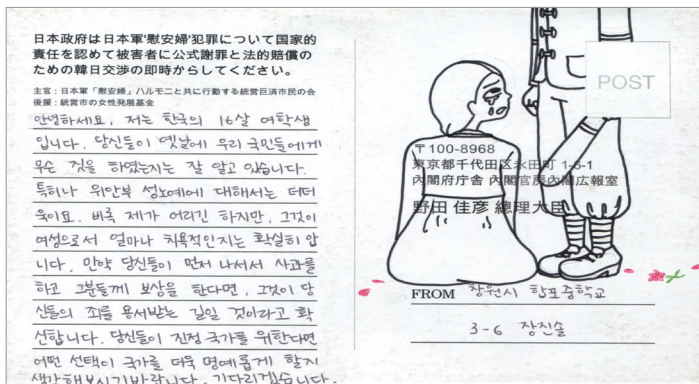 日本政府は日本軍'慰安婦'犯罪について国家的
責任を認めて被害者に公式謝罪と法的賠償の
ための韓日交渉の即時からしてください。
主官：日本軍「慰安婦」ハルモニと共に行動する統営巨済市民の会
後援：統営市の女性発展基金
안녕하세요, 저는 한국의 16살 여학생
입니다. 당신들이 옛날에 우리 국민들에게
무슨 짓을 하였는지는 잘 알고 있습니다.
특히나 위안부 성노예에 대해서는 더더
욱이요. 비록 제가 어리긴 하지만, 그것이
여성으로서 얼마나 치욕적인지는 확실히 압
니다. 만약 당신들이 먼저 나서서 사과를
하고 그분들께 보상을 한다면, 그것이 당
신들의 죄를 용서받는 길일 것이라고 확
신합니다. 당신들이 진정 국가를 위한다면
어떤 선택이 국가를 더욱 명예롭게 할지
생각해보시기 바랍니다. 기다리겠습니다.
POST
〒100-8968
東京都千代田区永田町 1-6-1
内閣府庁舎 内閣官房内閣広報室
野田 佳彦 總理大臣
FROM 창원시 합포중학교
3-6 장진솔